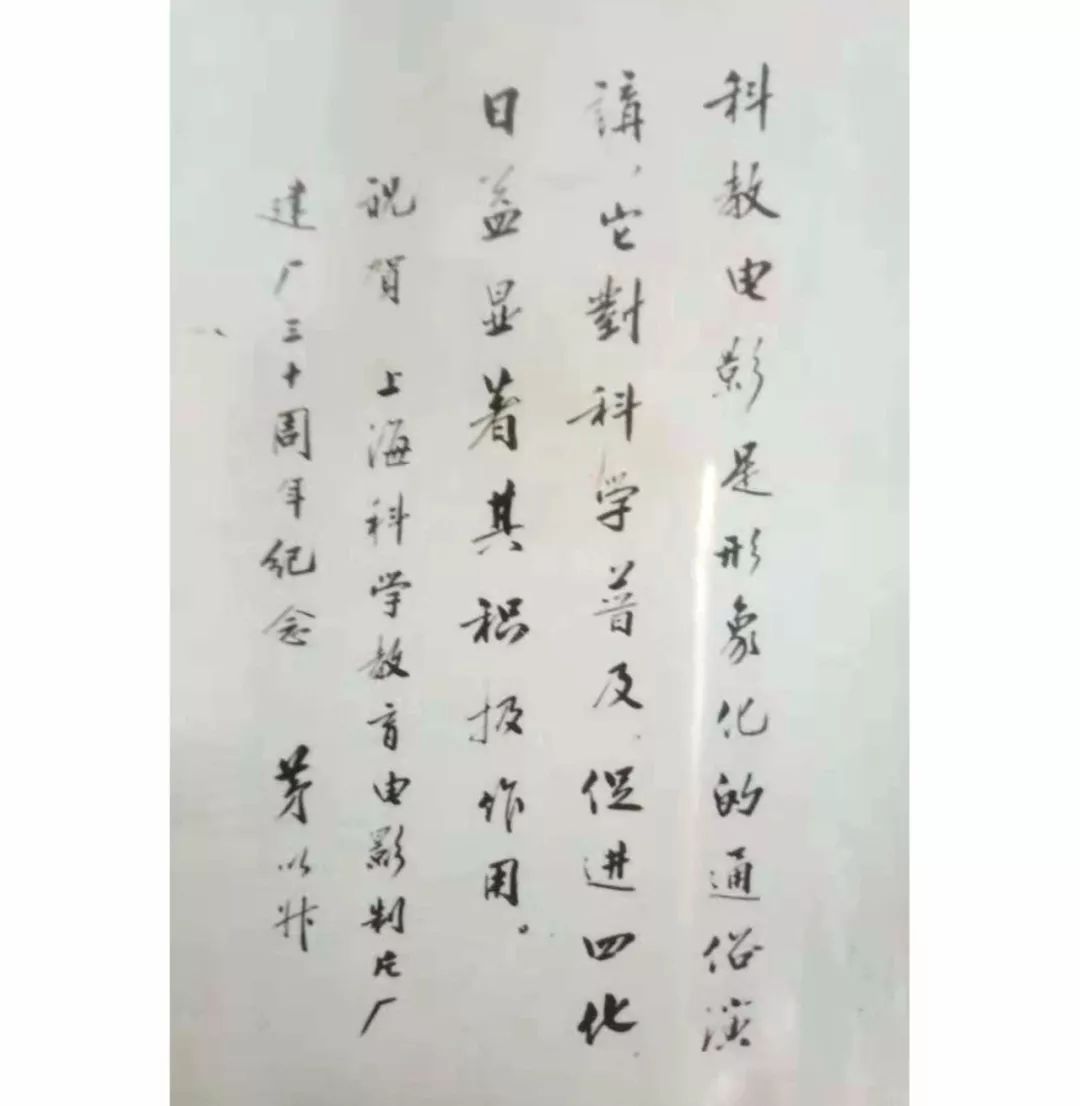 科教电影是形象化的通俗演
讲，它對科学普及，促进四化
日益显着其积极作用。
祝贺 上海科学教育电影制片厂
建厂三十周年纪念 茅以升